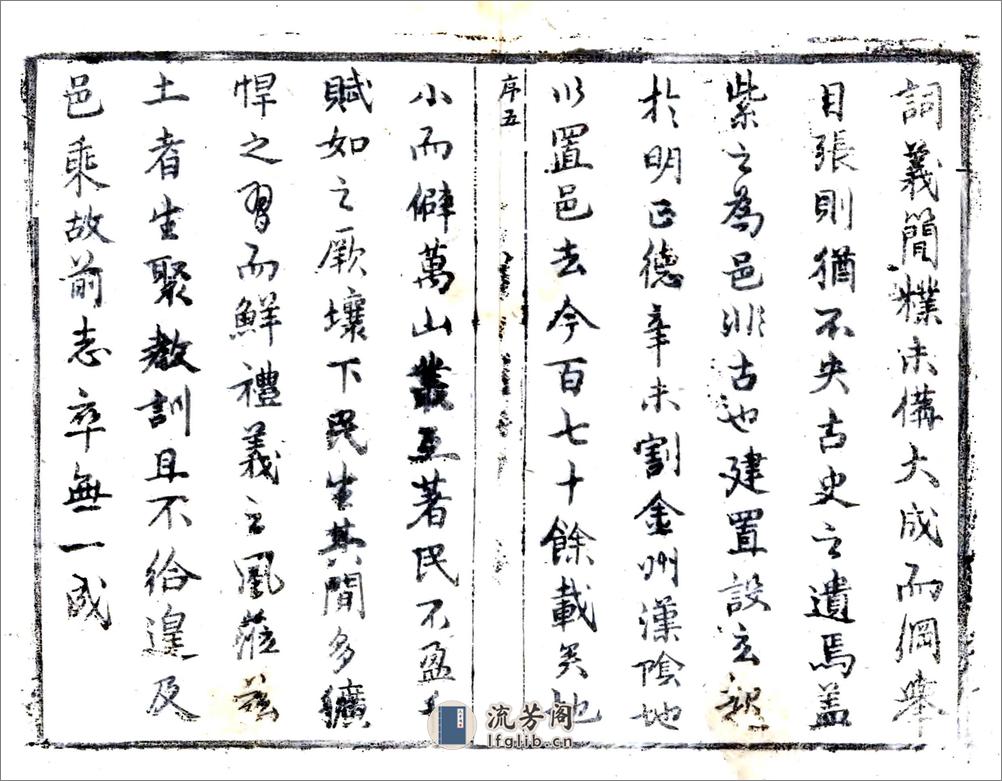 詞義簡樸未備大成而綱舉
目張則猶不失古史之遺焉蓋
紫之為邑非古也建置設立
於明正德辛未割金州漢陰地
以置邑去今百七十餘載矣地
序五
小而僻萬山叢互著民不盈千
賦如之厥壤下民生其間多獷
悍之習而鮮禮義之風蒞茲
土者生聚教訓且不給遑及
邑乘故前志卒無一成
流芳阁
lfglib.cn